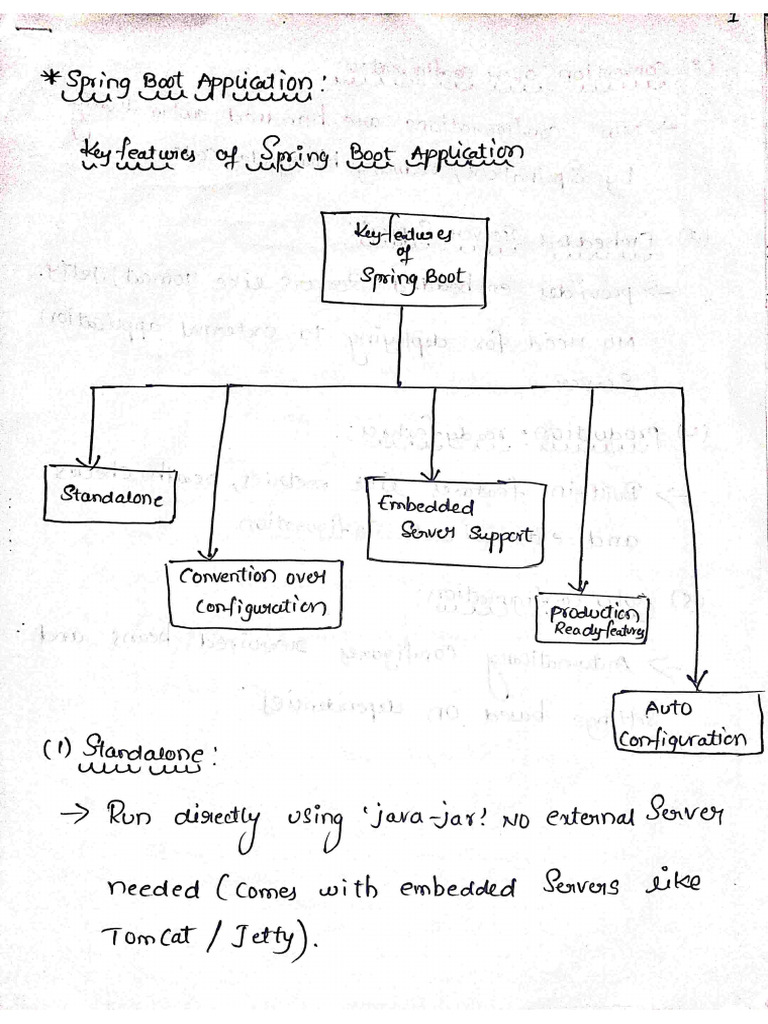 1
*Spring Boot Application:
Key features of Spring Boot Application
Key features
of
Spring Boot
Standalone
Embedded
Server Support
Convention over
Configuration
Production
Ready feature
Auto
Configuration
(1) Standalone:
→ Run directly using 'java-jar'. No external Server
needed (comes with embedded Servers like
TomCat / Jetty).